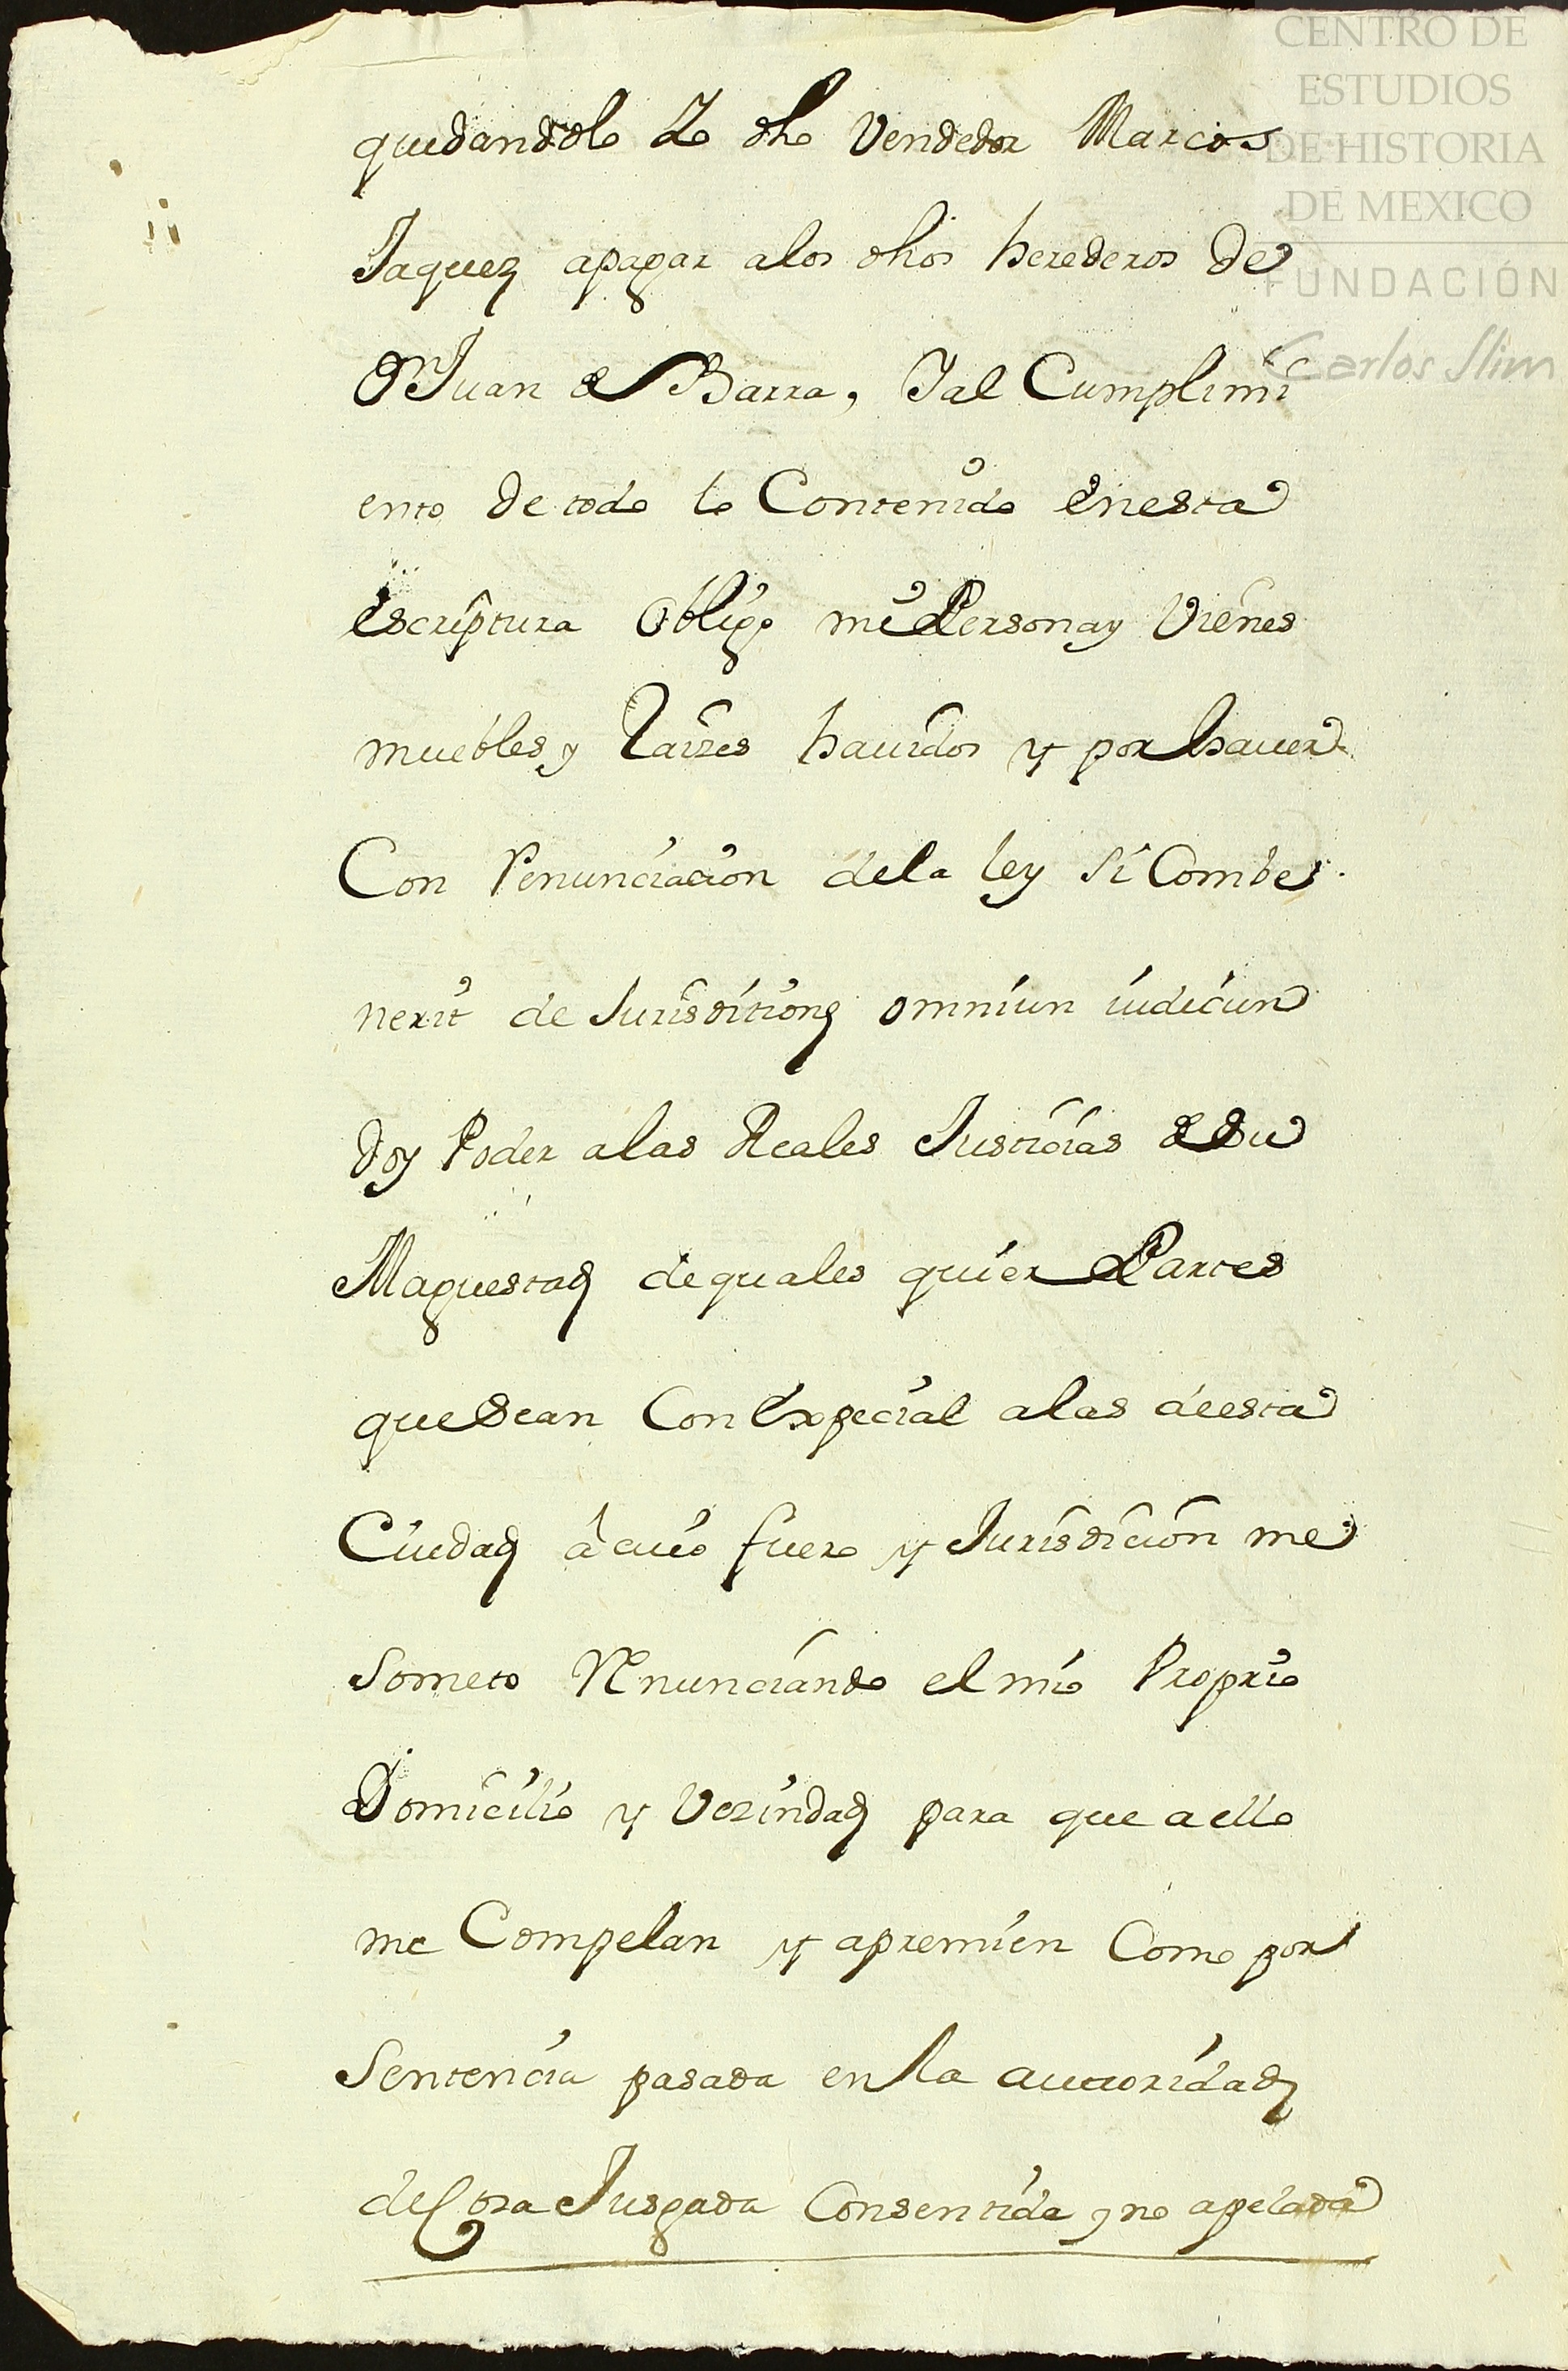 CENTRO DE
ESTUDIOS
DE HISTORIA
DE MEXICO
FUNDACIÓN
Carlos Slim
quedandole dho Vendedor Marcos
Jaquez apagar alos dhos herederos de
Juan de Ybarra, Yal Cumplimi
ento de todo lo Contenido enesta
escriptura obligo mi Personay Vienes
muebles y Raizes hauidos y por hauer
Con Renunciacion dela ley si Combe
nerit de Jurisditiong omniun iudicun
doy Poder alas Reales Justicias de Su
Maguestad dequales quier Partes
queSean Con Expecial alas deesta
Ciudad a cuio fuero y Jurisdicion me
Someto Renunciando el mio Proprio
Domicilio y Vezindad para que aello
me Compelan y apremien Como por
Sentencia pasada en la auctoridad
de Cosa Jusgada Consentida y no apelada